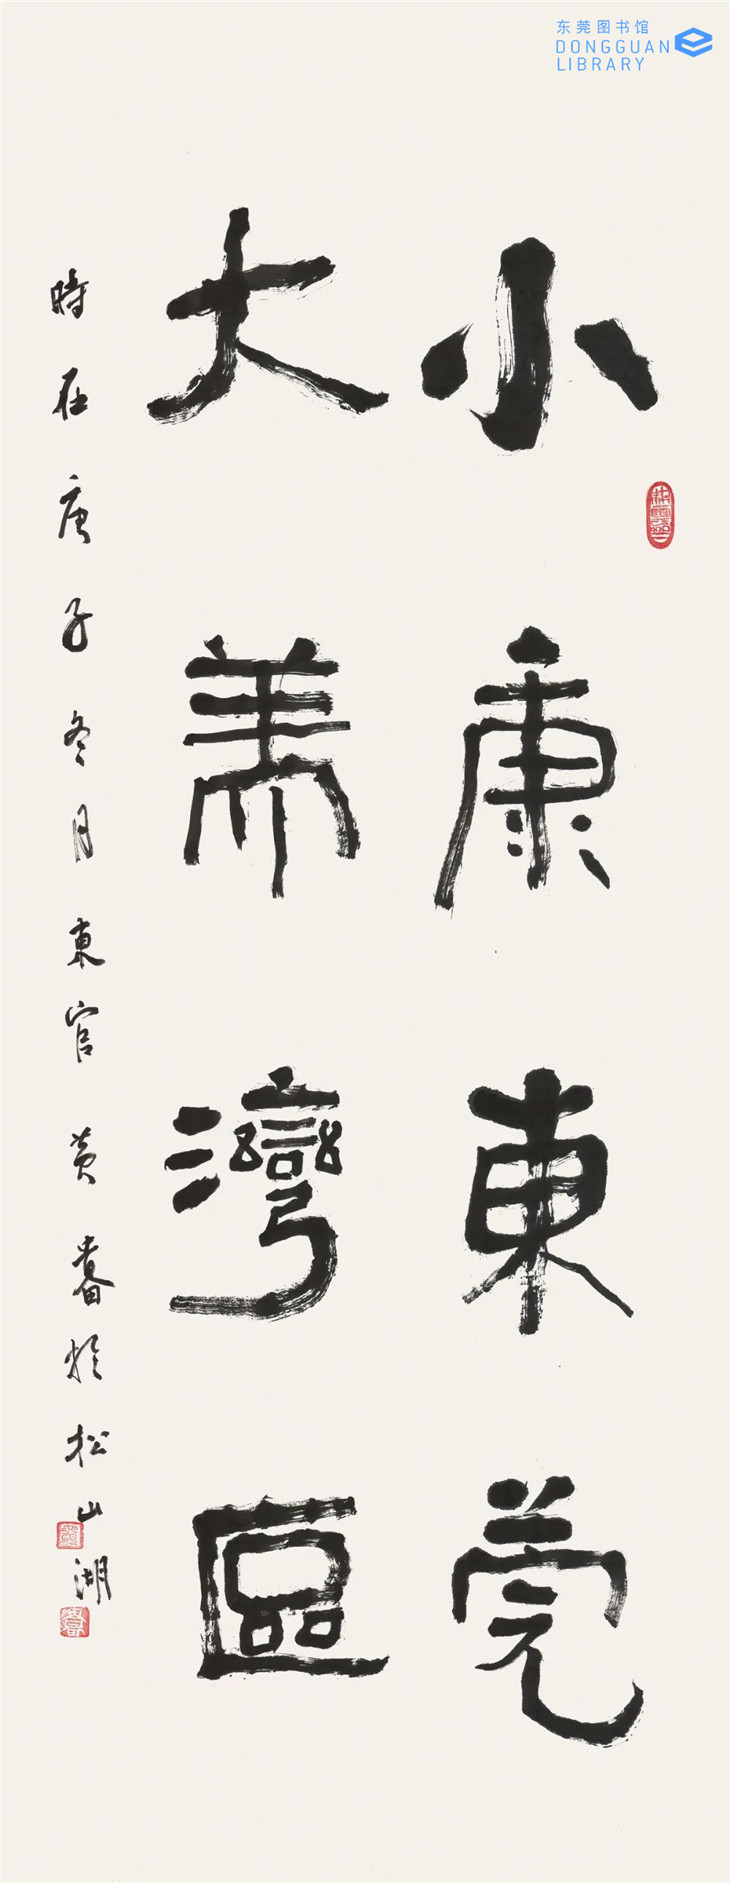 东莞图书馆
DONGGUAN
LIBRARY
小康東莞
大美灣區
時在庚子冬月東官黄春於松山湖